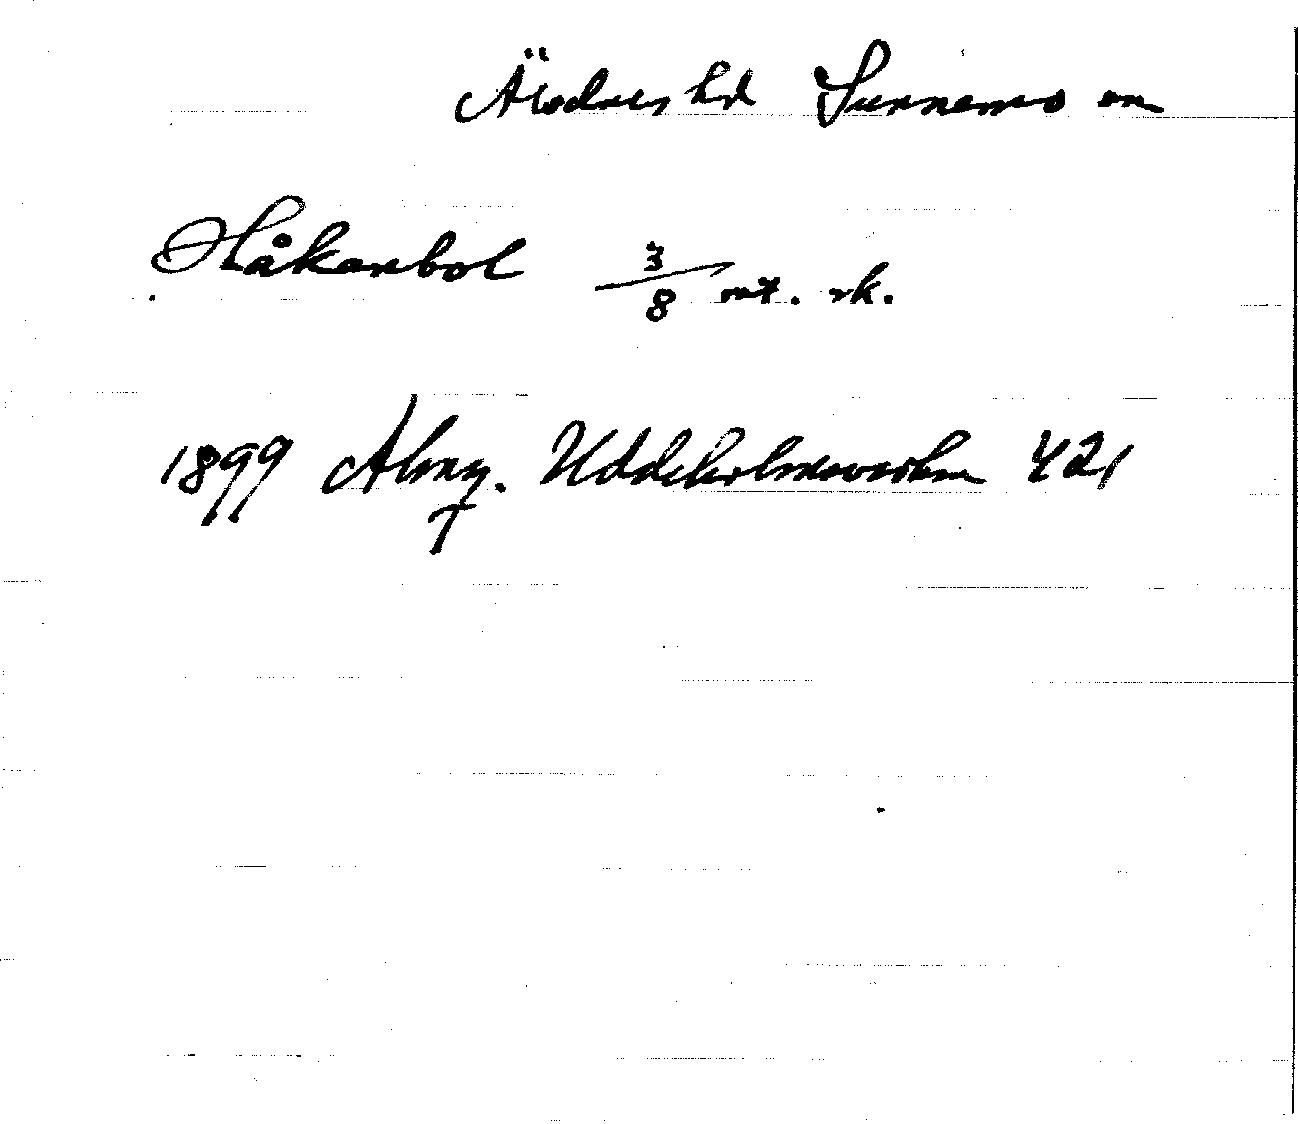 Älvdals hd Sunnemo sn
Håkanbol 3/8 mt. sk.
1899 Almq. Uddeholmsverken 421